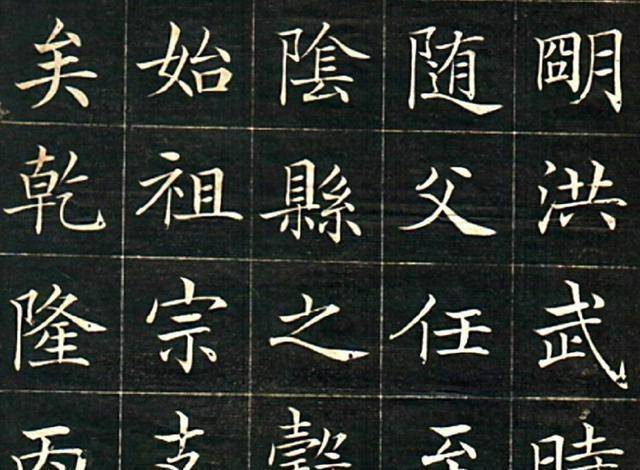 朙洪武時
随父任至
陰縣之
始祖宗支
矣乾隆丙